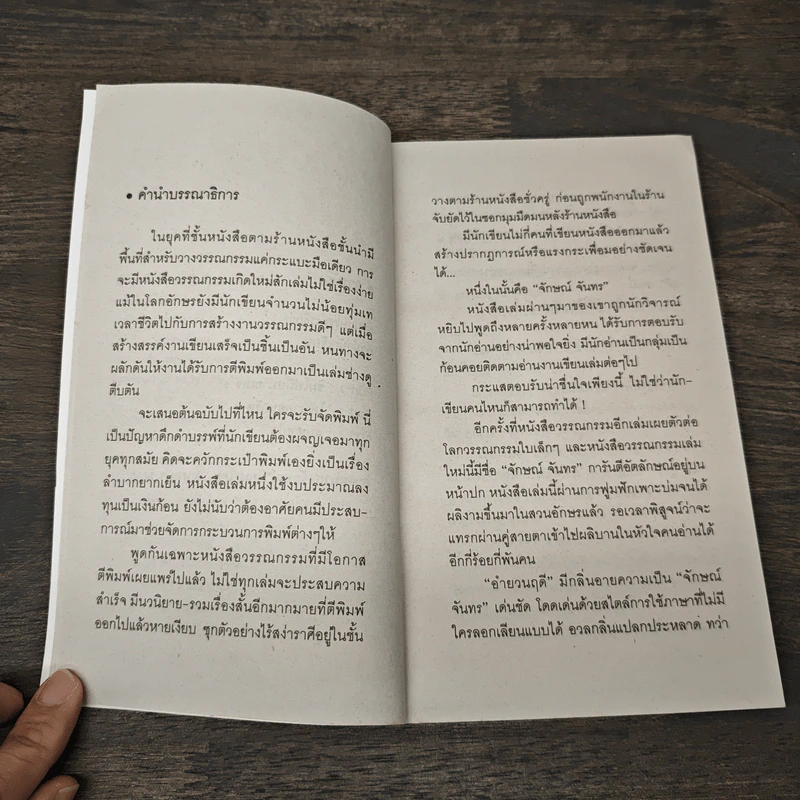 • คำนำบรรณาธิการ
ในยุคที่ชั้นหนังสือตามร้านหนังสือชั้นนำมี
พื้นที่สำหรับวางวรรณกรรมแค่กระแบะมือเดียว การ
จะมีหนังสือวรรณกรรมเกิดใหม่สักเล่มไม่ใช่เรื่องง่าย
แม้ในโลกอักษรยังมีนักเขียนจำนวนไม่น้อยทุ่มเท
เวลาชีวิตไปกับการสร้างงานวรรณกรรมดีๆ แต่เมื่อ
สร้างสรรค์งานเขียนเสร็จเป็นชิ้นเป็นอัน หนทางจะ
ผลักดันให้งานได้รับการตีพิมพ์ออกมาเป็นเล่มช่างดู
ตีบตัน
จะเสนอต้นฉบับไปที่ไหน ใครจะรับจัดพิมพ์ นี่
เป็นปัญหาดึกดำบรรพ์ที่นักเขียนต้องผจญเจอมาทุก
ยุคทุกสมัย คิดจะควักกระเป๋าพิมพ์เองยิ่งเป็นเรื่อง
ลำบากยากเย็น หนังสือเล่มหนึ่งใช้งบประมาณลง
ทุนเป็นเงินก้อน ยังไม่นับว่าต้องอาศัยคนมีประสบ-
การณ์มาช่วยจัดการกระบวนการพิมพ์ต่างๆให้
พูดกันเฉพาะหนังสือวรรณกรรมที่มีโอกาส
ตีพิมพ์เผยแพร่ไปแล้ว ไม่ใช่ทุกเล่มจะประสบความ
สำเร็จ มีนวนิยาย-รวมเรื่องสั้นอีกมากมายที่ตีพิมพ์
ออกไปแล้วหายเงียบ ซุกตัวอย่างไร้สง่าราศีอยู่ในชั้น
วางตามร้านหนังสือชั่วครู่ ก่อนถูกพนักงานในร้าน
จับยัดไว้ในซอกมุมมืดมนหลังร้านหนังสือ
มีนักเขียนไม่กี่คนที่เขียนหนังสือออกมาแล้ว
สร้างปรากฏการณ์หรือแรงกระเพื่อมอย่างชัดเจน
ได้...
หนึ่งในนั้นคือ “จักษณ์ จันทร”
หนังสือเล่มผ่านๆมาของเขาถูกนักวิจารณ์
หยิบไปพูดถึงหลายครั้งหลายหน ได้รับการตอบรับ
จากนักอ่านอย่างน่าพอใจยิ่ง มีนักอ่านเป็นกลุ่มเป็น
ก้อนคอยติดตามอ่านงานเขียนเล่มต่อๆไป
กระแสตอบรับน่าชื่นใจเพียงนี้ ไม่ใช่ว่านัก-
เขียนคนไหนก็สามารถทำได้ !
อีกครั้งที่หนังสือวรรณกรรมอีกเล่มเผยตัวต่อ
โลกวรรณกรรมใบเล็กๆ และหนังสือวรรณกรรมเล่ม
ใหม่นี้มีชื่อ “จักษณ์ จันทร” การันตีอัตลักษณ์อยู่บน
หน้าปก หนังสือเล่มนี้ผ่านการฟูมฟักเพาะบ่มจนได้
ผลิงามขึ้นมาในสวนอักษรแล้ว รอเวลาพิสูจน์ว่าจะ
แทรกผ่านคู่สายตาเข้าไปผลิบานในหัวใจคนอ่านได้
อีกกี่ร้อยกี่พันคน
“อำยวนฤดี” มีกลิ่นอายความเป็น “จักษณ์
จันทร” เด่นชัด โดดเด่นด้วยสไตล์การใช้ภาษาที่ไม่มี
ใครลอกเลียนแบบได้ อวลกลิ่นแปลกประหลาด ทว่า